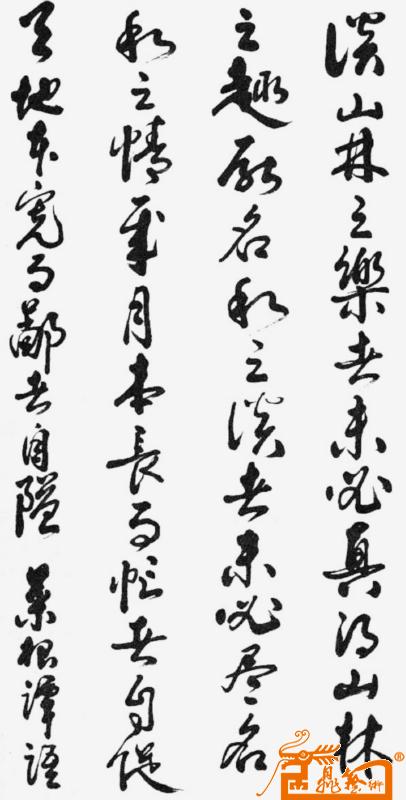 談山林之樂者未必真得山林
之趣厭名利之談者未必尽名
利之情歲月本長而忙者自促
天地本寬而鄙者自隘 菜根譚語